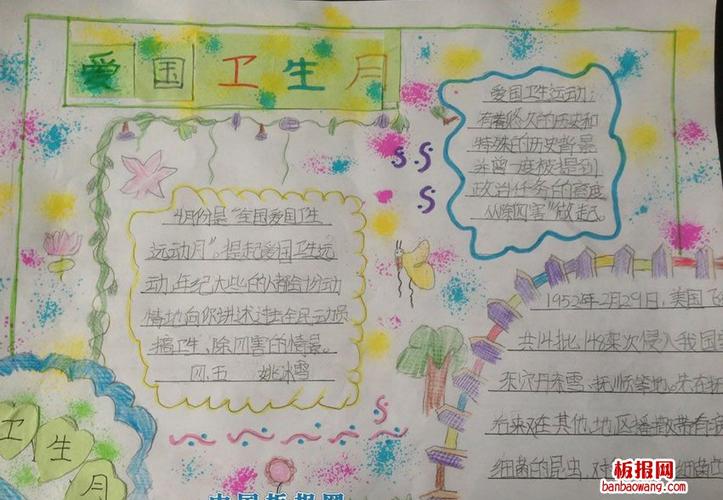 爱国卫生月
爱国卫生运动:
有着悠久的历史和
特殊的历史背景
并曾一度被提到
政治任务的高度
从除四害"做起.
4月份是"全国爱国卫生
运动月"。提起爱国卫生运
动,年纪大些的人都会份动
情地向你讲述过去全民动员
搞卫生、除四害的情景。
四.五 姚冰雪
1952年2月29日,美国飞
共14批,148架次侵入我国
东,抚顺等地.先在抚
后来又在其他地区播撒带有
细菌的昆虫,对
卫生月
中国板报网
板报网
banbaowang.com